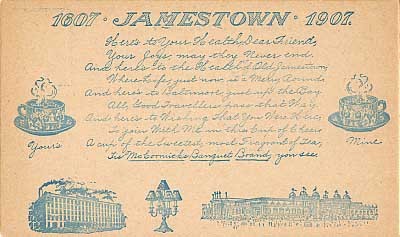 1607 · JAMESTOWN · 1907.
Here's to Your Health, Dear Friend,
Your Joys, may they Never end.
And here's to the Health of Old Jamestown,
Where Life just now is a Merry Round.
And here's to Baltimore, just up the Bay
All Good Travellers pass that Way.
And here's to Wishing That You Were Here,
To join With Me in this Cup of Cheer
A cup of the Sweetest, most Fragrant of Tea,
Tis McCormick's Banquet Brand, you see.
Yours
Mine